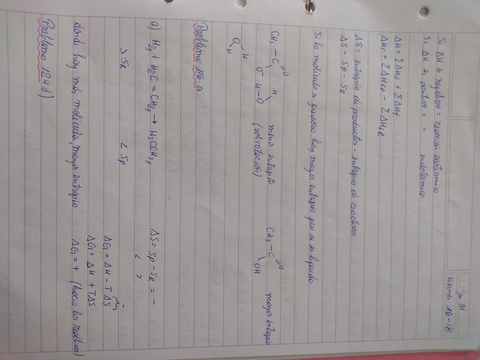 Si ΔH es negativo = reacción exotérmica
Si ΔH es positivo = " endotérmica
ΔH = ΣΔHp + ΣΔHr
ΔHr = ΣΔHp - ΣΔHR
ΔS = entropía de productos - entropía de reactivos
ΔS = Sp - SR
Si la molécula es gaseosa hay mayor entropía que si es líquida
CH3 - C
O
H
O - H - O
menor entropía
(solvatación)
CH3 - C
O
OH
mayor entropía
Problema
a) H2 + H2C = CH2 → H3CCH3
ΔS = Sp - SR = -
> SR
< Sp
ΔG = ΔH - TΔS
ΔG = ΔH + TΔS
donde hay más moléculas, mayor entropía
ΔG = +
Problema 124 d)